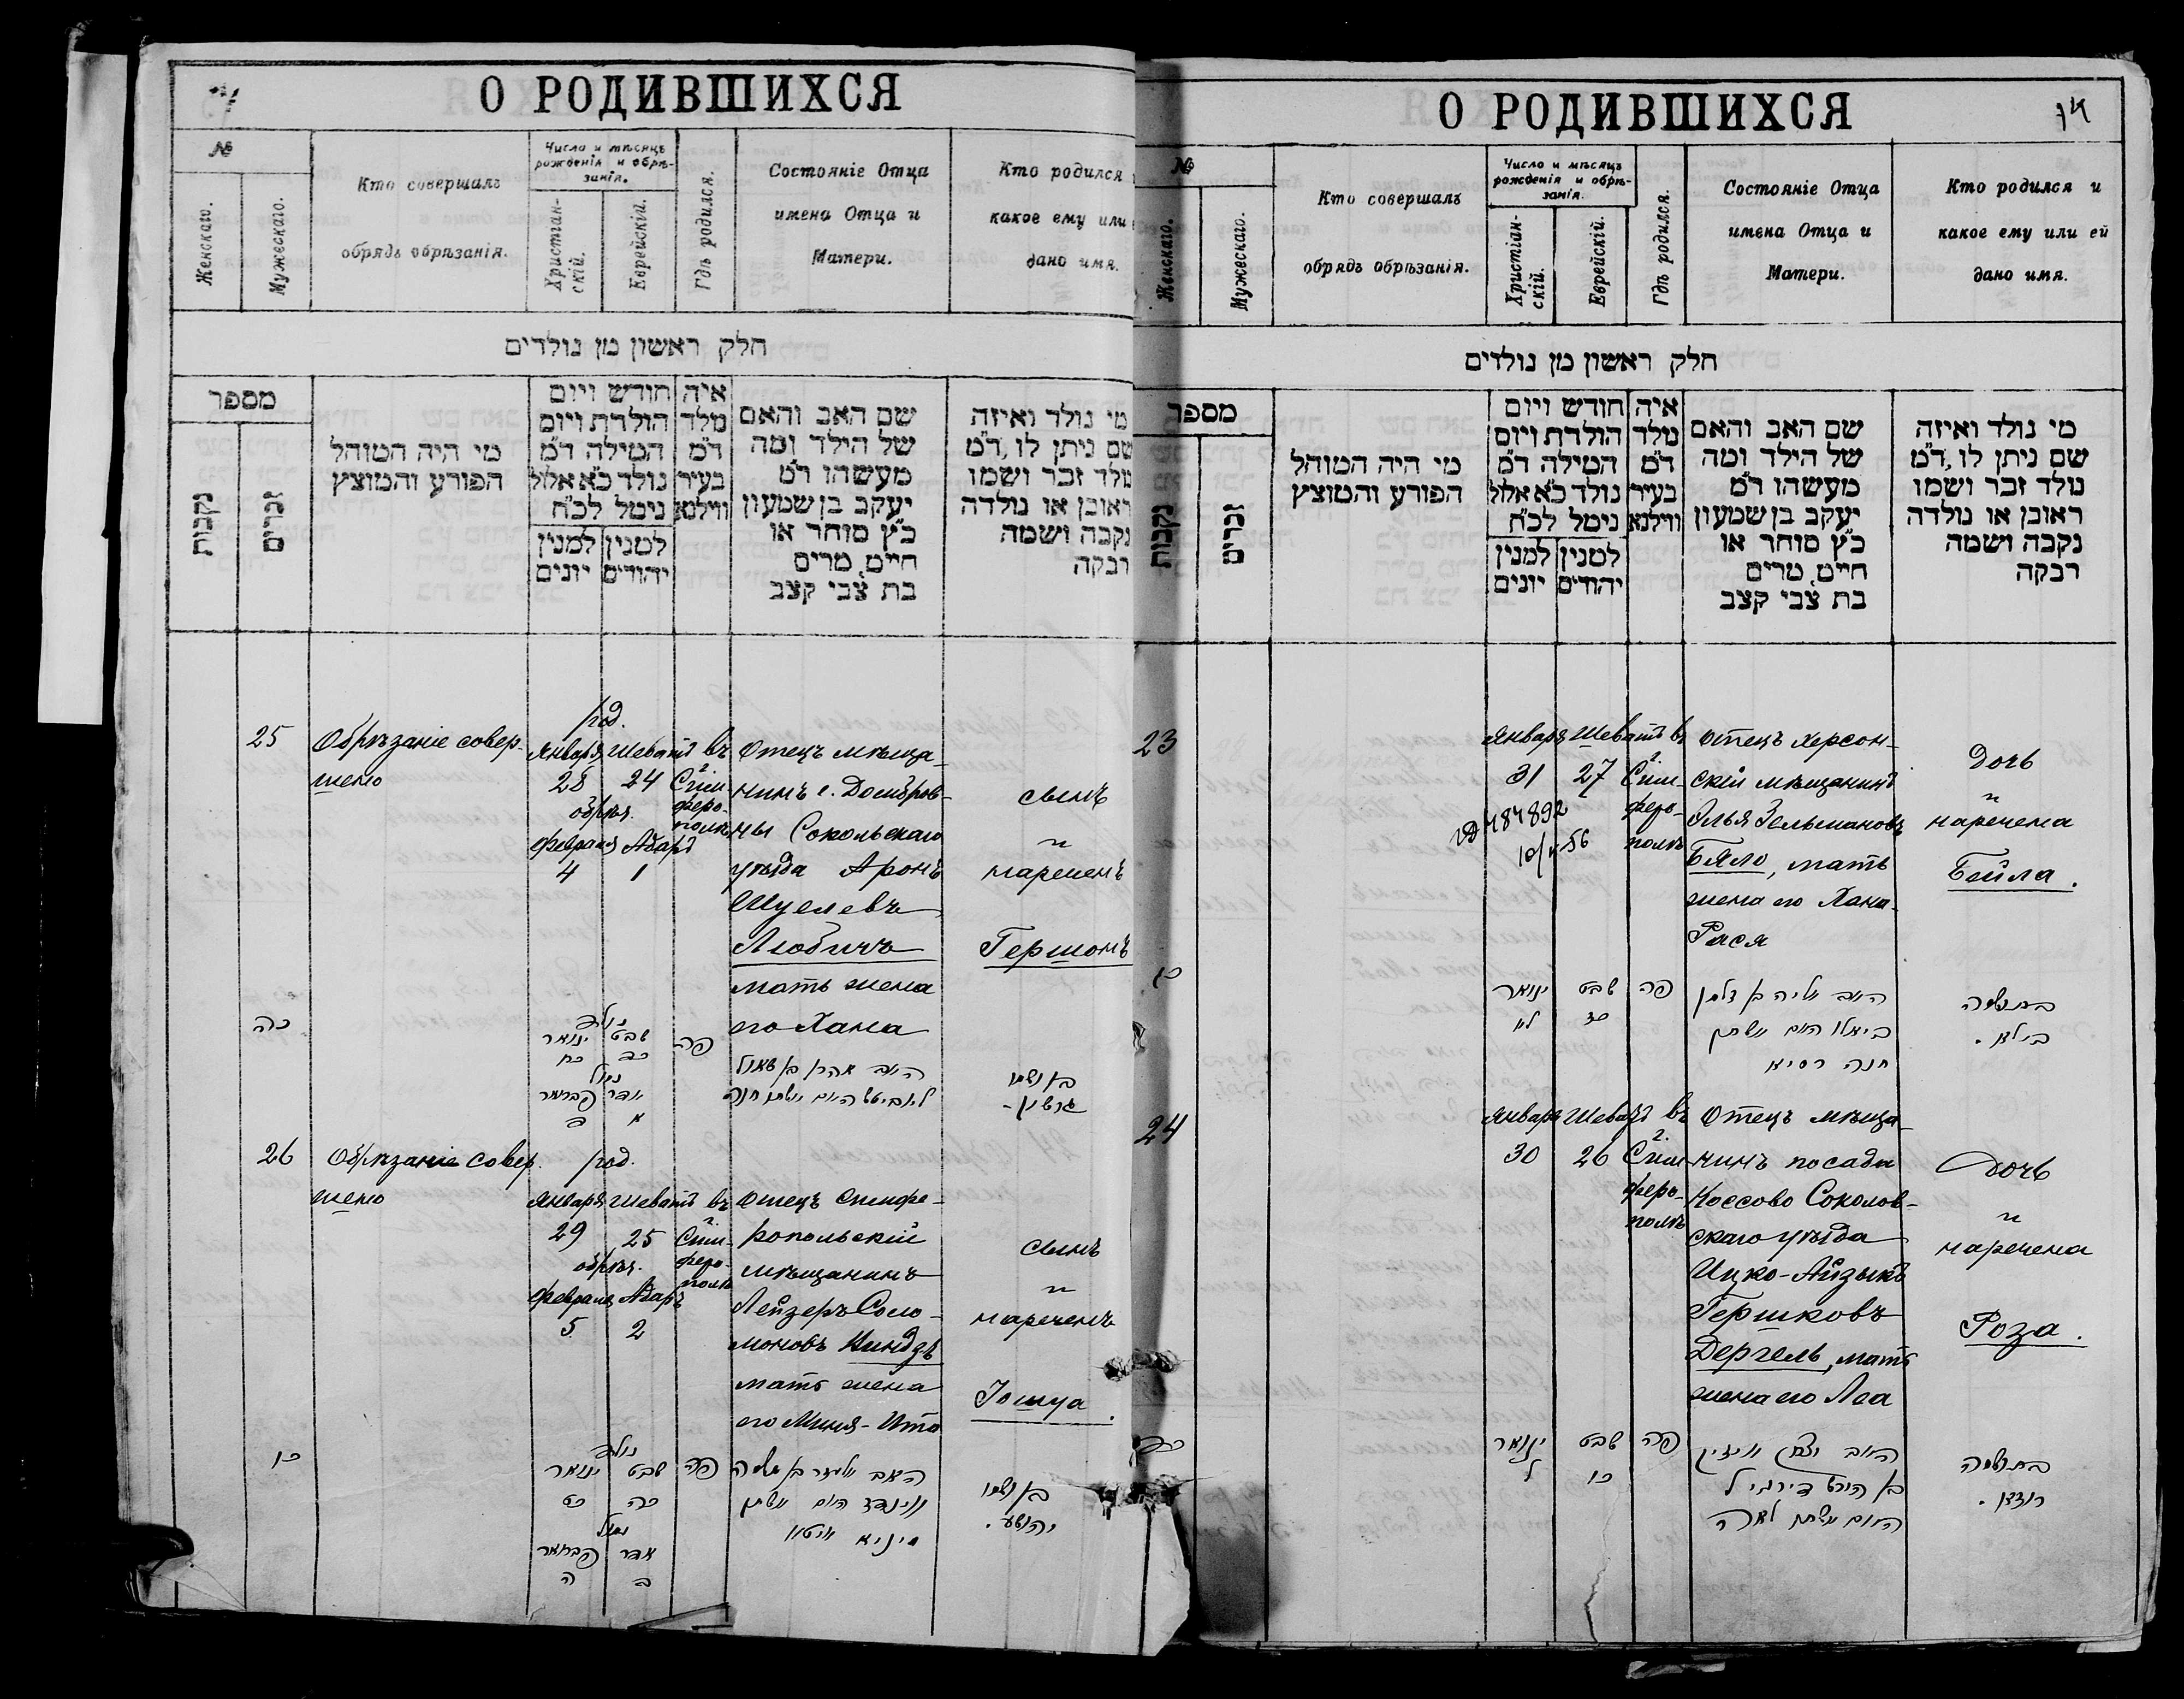 О РОДИВШИХСЯ
№
Женскаго.
Мужескаго.
Кто совершалъ
обрядъ обрѣзанія.
Число и мѣсяцъ
рожденія и обрѣ-
занія.
Христіан-
скій.
Еврейскій.
Гдѣ родился.
Состояніе Отца
имена Отца и
Матери.
Кто родился
какое ему или
дано имя.
חלק ראשון מן נולדים
מספר
נקבות
זכרים
מי היה המוהל
הפורע והמוצץ
חודש ויום
הולדת ויום
המילה ד״מ
נולד כ״א אלול
נימל לכ״ח
למנין
יהודים
למנין
יונים
איה
נולד
ד״מ
בעיר
ווילנא
שם האב והאם
של הילד ומה
מעשהו ד״מ
יעקב בן שמעון
כ״ץ סוחר או
חייט, מרים
בת צבי קצב
מי נולד ואיזה
שם ניתן לו, ד״מ
נולד זכר ושמו
ראובן או נולדה
נקבה ושמה
רבקה
25
Обрѣзаніе совер-
шено
род.
Января Шеватъ
28 24
обрѣз.
Февраля Адаръ
4 1
въ
г.
Сим-
феро-
полѣ
Отецъ мѣща-
нинъ г. Домбров-
ны Сокольскаго
уѣзда Аронъ
Шуелевъ
Любичъ
мать жена
его Хана
сынъ
и
нареченъ
Гершонъ
כה
נולד
שבט ינואר
כד כח
נימול
אדר פברואר
א ד
פה
האב אהרן בן שאול
ליוביטש האם אשתו חנה
בן ושמו
גרשון.
26
Обрѣзаніе совер.
шено
род.
Января Шеватъ
29 25
обрѣз.
Февраля Адаръ
5 2
въ
г.
Сим-
феро-
полѣ
Отецъ Симфе-
ропольскій
мѣщанинъ
Лейзеръ Соло-
моновъ Виндзъ
мать жена
его Миня-Ита
сынъ
и
нареченъ
Іошуа.
כו
נולד
שבט ינואר
כה כט
נימול
אדר פברואר
ב ה
פה
האב אליעזר בן שלמה
ווינדז האם אשתו
מיניא איטא
בן ושמו
יהושע.
О РОДИВШИХСЯ
14
№
Женскаго.
Мужескаго.
Кто совершалъ
обрядъ обрѣзанія.
Число и мѣсяцъ
рожденія и обрѣ-
занія.
Христіан-
скій.
Еврейскій.
Гдѣ родился.
Состояніе Отца
имена Отца и
Матери.
Кто родился и
какое ему или ей
дано имя.
חלק ראשון מן נולדים
מספר
נקבות
זכרים
מי היה המוהל
הפורע והמוצץ
חודש ויום
הולדת ויום
המילה ד״מ
נולד כ״א אלול
נימל לכ״ח
למנין
יהודים
למנין
יונים
איה
נולד
ד״מ
בעיר
ווילנא
שם האב והאם
של הילד ומה
מעשהו ד״מ
יעקב בן שמעון
כ״ץ סוחר או
חייט, מרים
בת צבי קצב
מי נולד ואיזה
שם ניתן לו, ד״מ
נולד זכר ושמו
ראובן או נולדה
נקבה ושמה
רבקה
23
Января Шеватъ
31 27
484892
въ
г.
Сим-
феро-
полѣ
Отецъ Херсон-
скій мѣщанинъ
Илья Зельмановъ
Бяло, мать
жена его Хана-
Рася
Дочь
и
наречена
Бейла.
שבט ינואר
כז לא
פה
האב אליה בן זלמן
ביאלו האם אשתו
חנה רסיא
בת ושמה
ביילא.
24
Января Шеватъ
30 26
въ
г.
Сим-
феро-
полѣ
Отецъ мѣща-
нинъ посада
Коссово Соколов-
скаго уѣзда
Ицко-Айзыкъ
Гершковъ
Дергель, мать
жена его Леа
Дочь
и
наречена
Роза.
כד
שבט ינואר
כו ל
פה
האב יצחק אייזיק
בן הירש דירגיל
האם אשתו לאה
בת ושמה
ראזא.